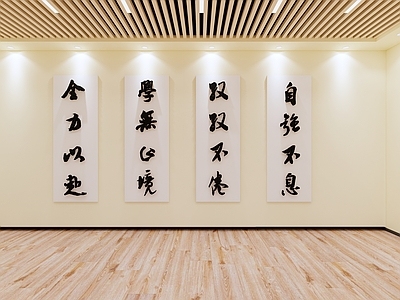 全力以赴
學無止境
孜孜不倦
自強不息